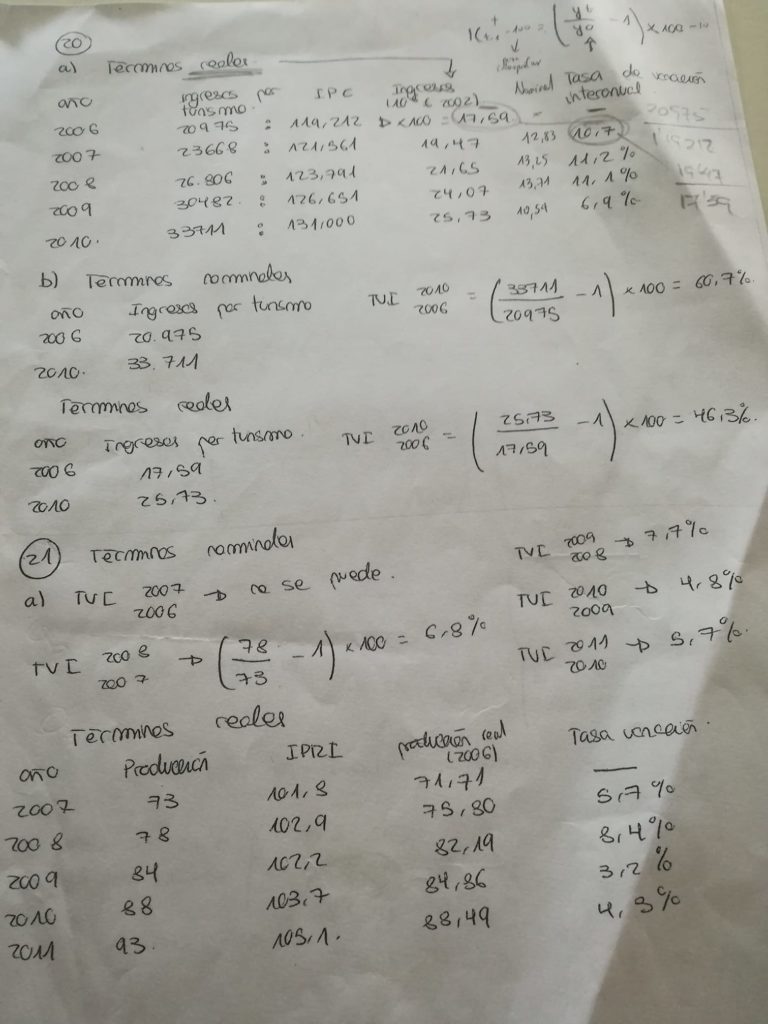 20
a) Términos reales.
año ingresos por turismo. IPC Ingresos (10⁶ € 2002) Nominal Tasa de variación interanual
2006 20975 : 119,212 → x100 = 17,59 -
2007 23668 : 121,561 19,47 12,83 10,7
2008 26.806 : 123,791 21,65 13,25 11,2%
2009 30482. : 126,651 24,07 13,71 11,1%
2010. 33711 : 131,000 25,73 10,59 6,9%
20975
119212
17'59
b) Términos nominales
año Ingresos por turismo
2006 20.975
2010. 33.711
TVI 2010/2006 = (33711/20975 - 1) x 100 = 60,7%.
Términos reales
año Ingresos por turismo.
2006 17,59
2010 25,73.
TVI 2010/2006 = (25,73/17,59 - 1) x 100 = 46,3%.
21 Términos nominales
a) TVI 2007/2006 → no se puede.
TVI 2008/2007 → (78/73 - 1) x 100 = 6,8%
TVI 2009/2008 → 7,7%
TVI 2010/2009 → 4,8%
TVI 2011/2010 → 5,7%.
Términos reales
año Producción IPRI producción real (2006) Tasa variación.
2007 73 101,8 71,71 —
2008 78 102,9 75,80 5,7%
2009 84 102,2 82,19 8,4%
2010 88 103,7 84,86 3,2%
2011 93. 105,1. 88,49 4,3%